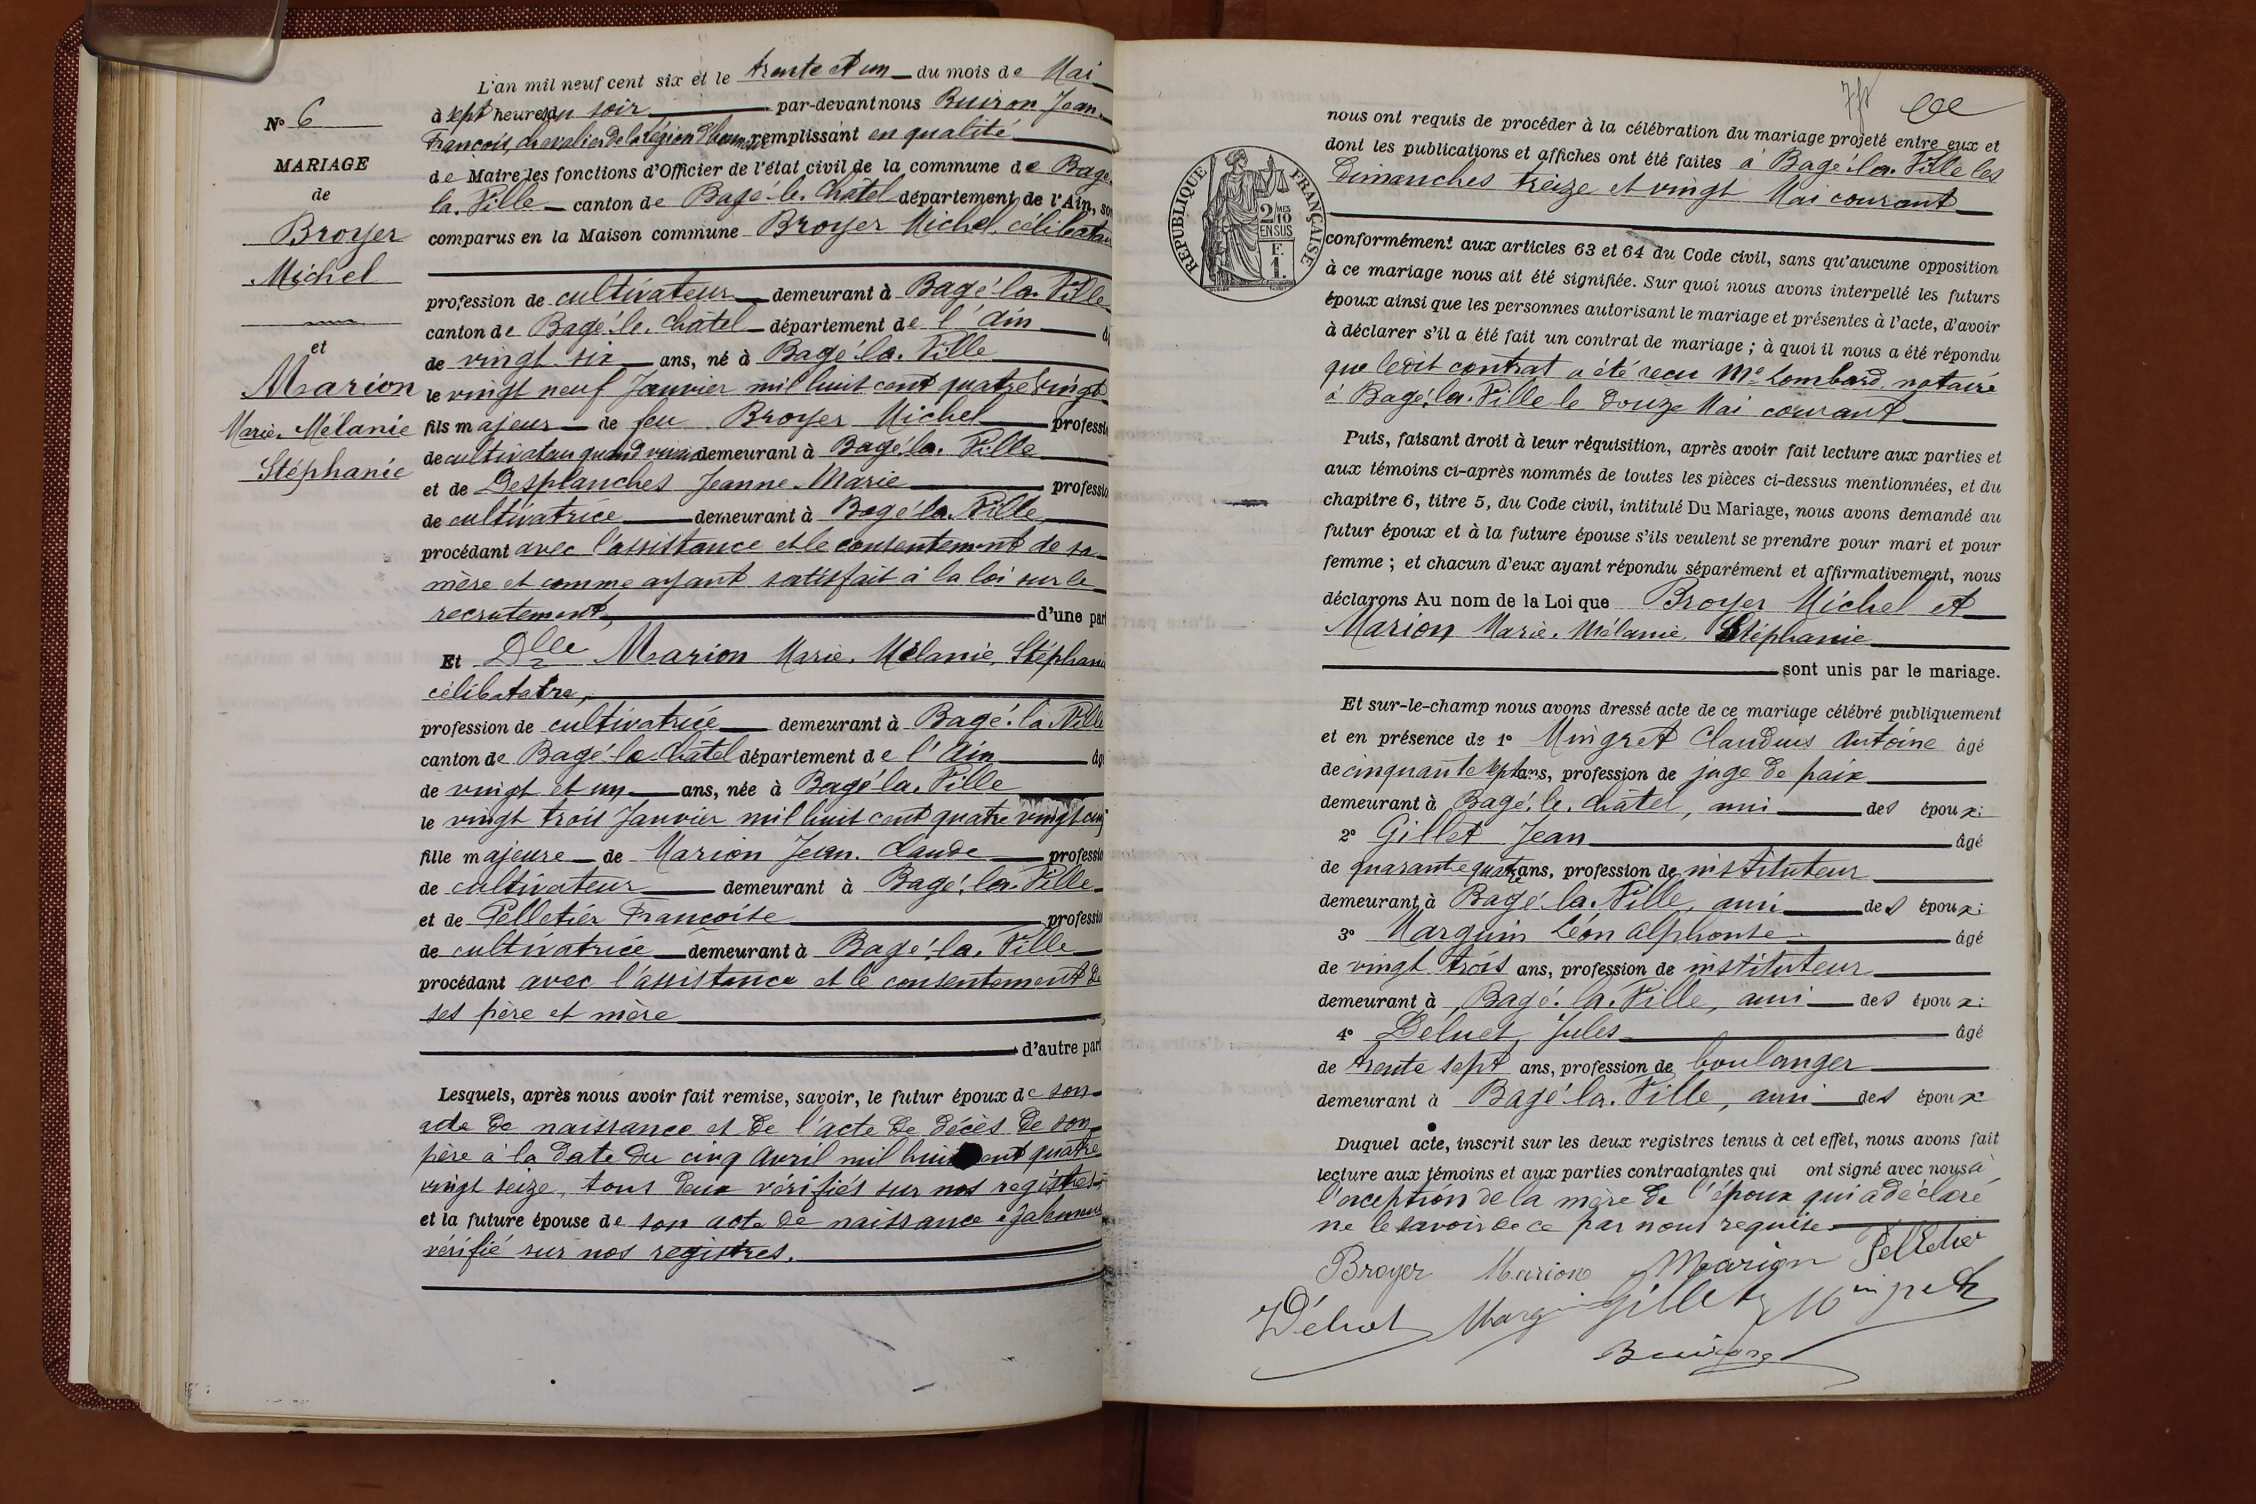 L'an mil neuf cent six et le trente et un du mois de Mai
à sept heures du soir par-devant nous Buiron Jean
François, chevalier de la Légion d'honneur remplissant en qualité
de Maire les fonctions d'Officier de l'état civil de la commune de Bagé
la. Ville canton de Bagé-le. Châtel département de l'Ain, so
comparus en la Maison commune Broyer Michel, célibataire
profession de cultivateur demeurant à Bagé-la. Ville
canton de Bagé-le. Châtel département de l'Ain âg
de vingt six ans, né à Bagé-la. Ville
le vingt neuf Janvier mil huit cent quatre vingt
fils majeur de feu Broyer Michel professio
de cultivateur quand vivait demeurant à Bagé. la. Ville
et de Desplanches Jeanne-Marie professio
de cultivatrice demeurant à Bagé-la. Ville
procédant avec l'assistance et le consentement de sa
mère et comme ayant satisfait à la loi sur le
recrutement, d'une part
Et Dlle Marion Marie. Mélanie, Stéphanie
célibataire,
profession de cultivatrice demeurant à Bagé. la. Ville
canton de Bagé-le. Châtel département de l'Ain âgé
de vingt et un ans, née à Bagé-la. Ville
le vingt trois Janvier mil huit cent quatre vingt cinq
fille majeure de Marion Jean. Claude professio
de cultivateur demeurant à Bagé. la. Ville
et de Pelletier Françoise professio
de cultivatrice demeurant à Bagé. la. Ville
procédant avec l'assistance et le consentement de
ses père et mère
d'autre part
Lesquels, après nous avoir fait remise, savoir, le futur époux de son
acte de naissance et de l'acte de décès de son
père à la date du cinq Avril mil huit cent quatre
vingt seize, tous deux vérifiés sur nos registres
et la future épouse de son acte de naissance également
vérifié sur nos registres.
N° 6
MARIAGE
de
Broyer
Michel
et
Marion
Marie. Mélanie
Stéphanie
nous ont requis de procéder à la célébration du mariage projeté entre eux et
dont les publications et affiches ont été faites à Bagé. la. Ville les
Dimanches treize et vingt Mai courant
RÉPUBLIQUE FRANÇAISE
2/10 MES
EN SUS
F.
1.
conformément aux articles 63 et 64 du Code civil, sans qu'aucune opposition
à ce mariage nous ait été signifiée. Sur quoi nous avons interpellé les futurs
époux ainsi que les personnes autorisant le mariage et présentes à l'acte, d'avoir
à déclarer s'il a été fait un contrat de mariage ; à quoi il nous a été répondu
que ledit contrat a été recu Me Lombard, notaire
à Bagé. la. Ville le douze Mai courant
Puis, faisant droit à leur réquisition, après avoir fait lecture aux parties et
aux témoins ci-après nommés de toutes les pièces ci-dessus mentionnées, et du
chapitre 6, titre 5, du Code civil, intitulé Du Mariage, nous avons demandé au
futur époux et à la future épouse s'ils veulent se prendre pour mari et pour
femme ; et chacun d'eux ayant répondu séparément et affirmativement, nous
déclarons Au nom de la Loi que Broyer Michel et
Marion Marie. Mélanie, Stéphanie
sont unis par le mariage.
Et sur-le-champ nous avons dressé acte de ce mariage célébré publiquement
et en présence de 1° Mingret Claudius Antoine âgé
de cinquante sept ans, profession de juge de paix
demeurant à Bagé. le. Châtel, ami des époux;
2° Gillet Jean âgé
de quarante quatre ans, profession de instituteur
demeurant à Bagé. la. Ville, ami des époux;
3° Marguin Léon Alphonse âgé
de vingt trois ans, profession de instituteur
demeurant à Bagé. la. Ville, ami des époux;
4° Deluet, Jules âgé
de trente sept ans, profession de boulanger
demeurant à Bagé. la. Ville, ami des époux
Duquel acte, inscrit sur les deux registres tenus à cet effet, nous avons fait
lecture aux témoins et aux parties contractantes qui ont signé avec nous à
l'exception de la mère de l'époux qui a déclaré
ne le savoir de ce par nous requise
Broyer Marion Marion Pelletier
Marguin Gillet Mingret
Buiron